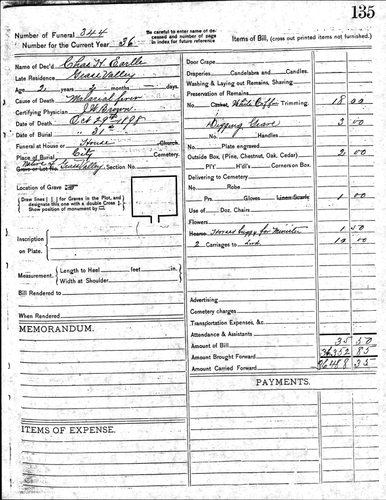 135
Number of Funeral 344
Number for the Current Year 36
Be careful to enter name of deceased and number of page in index for future reference
Items of Bill, (cross out printed items not furnished.)
Name of Dec'd, Chas H. Earlle
Late Residence Grass Valley
Age, 2 years 2 months days,
Cause of Death Malarial fever
Certifying Physician J. W. Brown
Date of Death, Oct 29th 1898
Date of Burial " 31st
Funeral at House or House Church.
Place of Burial City Cemetery.
Native of Grass Valley
Grave or Lot No. Section No.
Location of Grave
Draw lines for Graves in the Plot, and designate this one with a double Cross
Show position of monument by
Inscription
on Plate.
Measurement. Length to Heel feet in.
Width at Shoulder
Bill Rendered to
When Rendered
MEMORANDUM.
ITEMS OF EXPENSE.
Door Crape
Draperies, Candelabra and Candles.
Washing & Laying out Remains, Shaving
Preservation of Remains.
No. Casket, White Coffin Trimming. 18 00
Digging Grave 3 00
No. Handles
Plate engraved
Outside Box (Pine, Chestnut, Oak, Cedar) 2 00
PIY Will & Connerson Box.
Delivering to Cemetery
No. Robe
Prs. Gloves Linen Scarfs 1 00
Use of Doz. Chairs
Flowers
Hearse Horse & Buggy for Minister 1 50
2 Carriages to 10 00
Advertising
Cemetery charges
Transportation Expenses, &c
Attendance & Assistants
Amount of Bill 35 50
Amount Brought Forward 36352 85
Amount Carried Forward 36488 35
PAYMENTS.